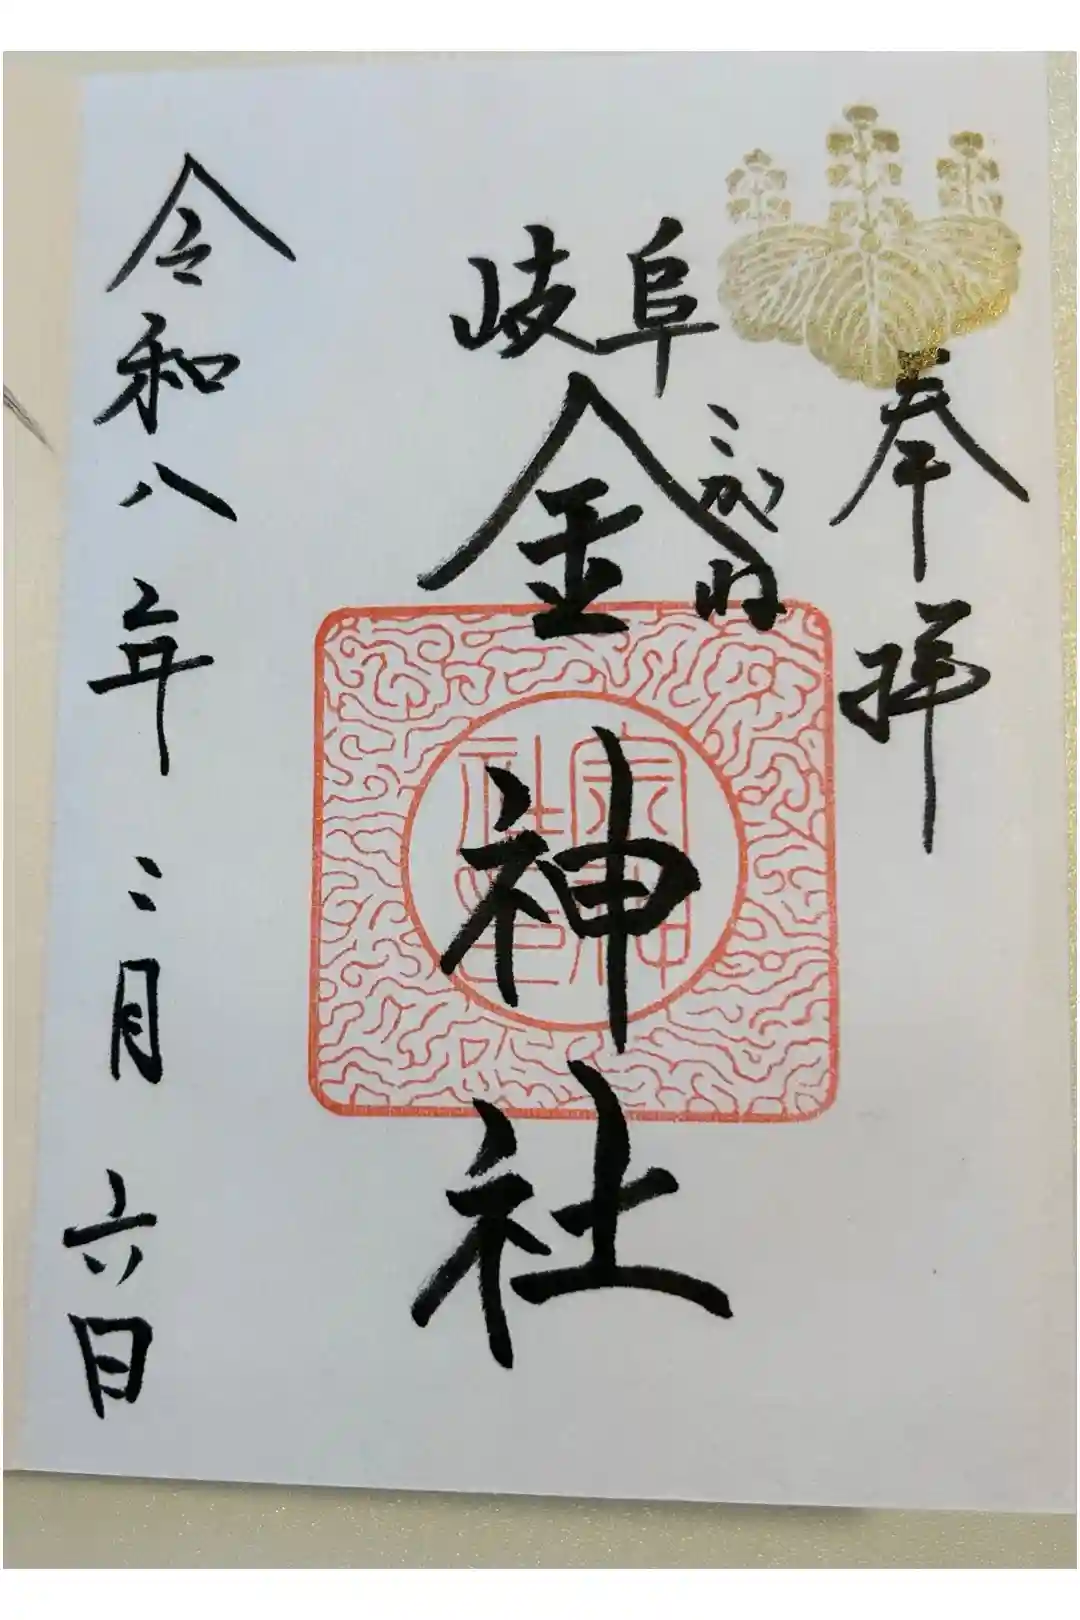 奉拝
岐阜
金神社
こがね
令和八年二月六日